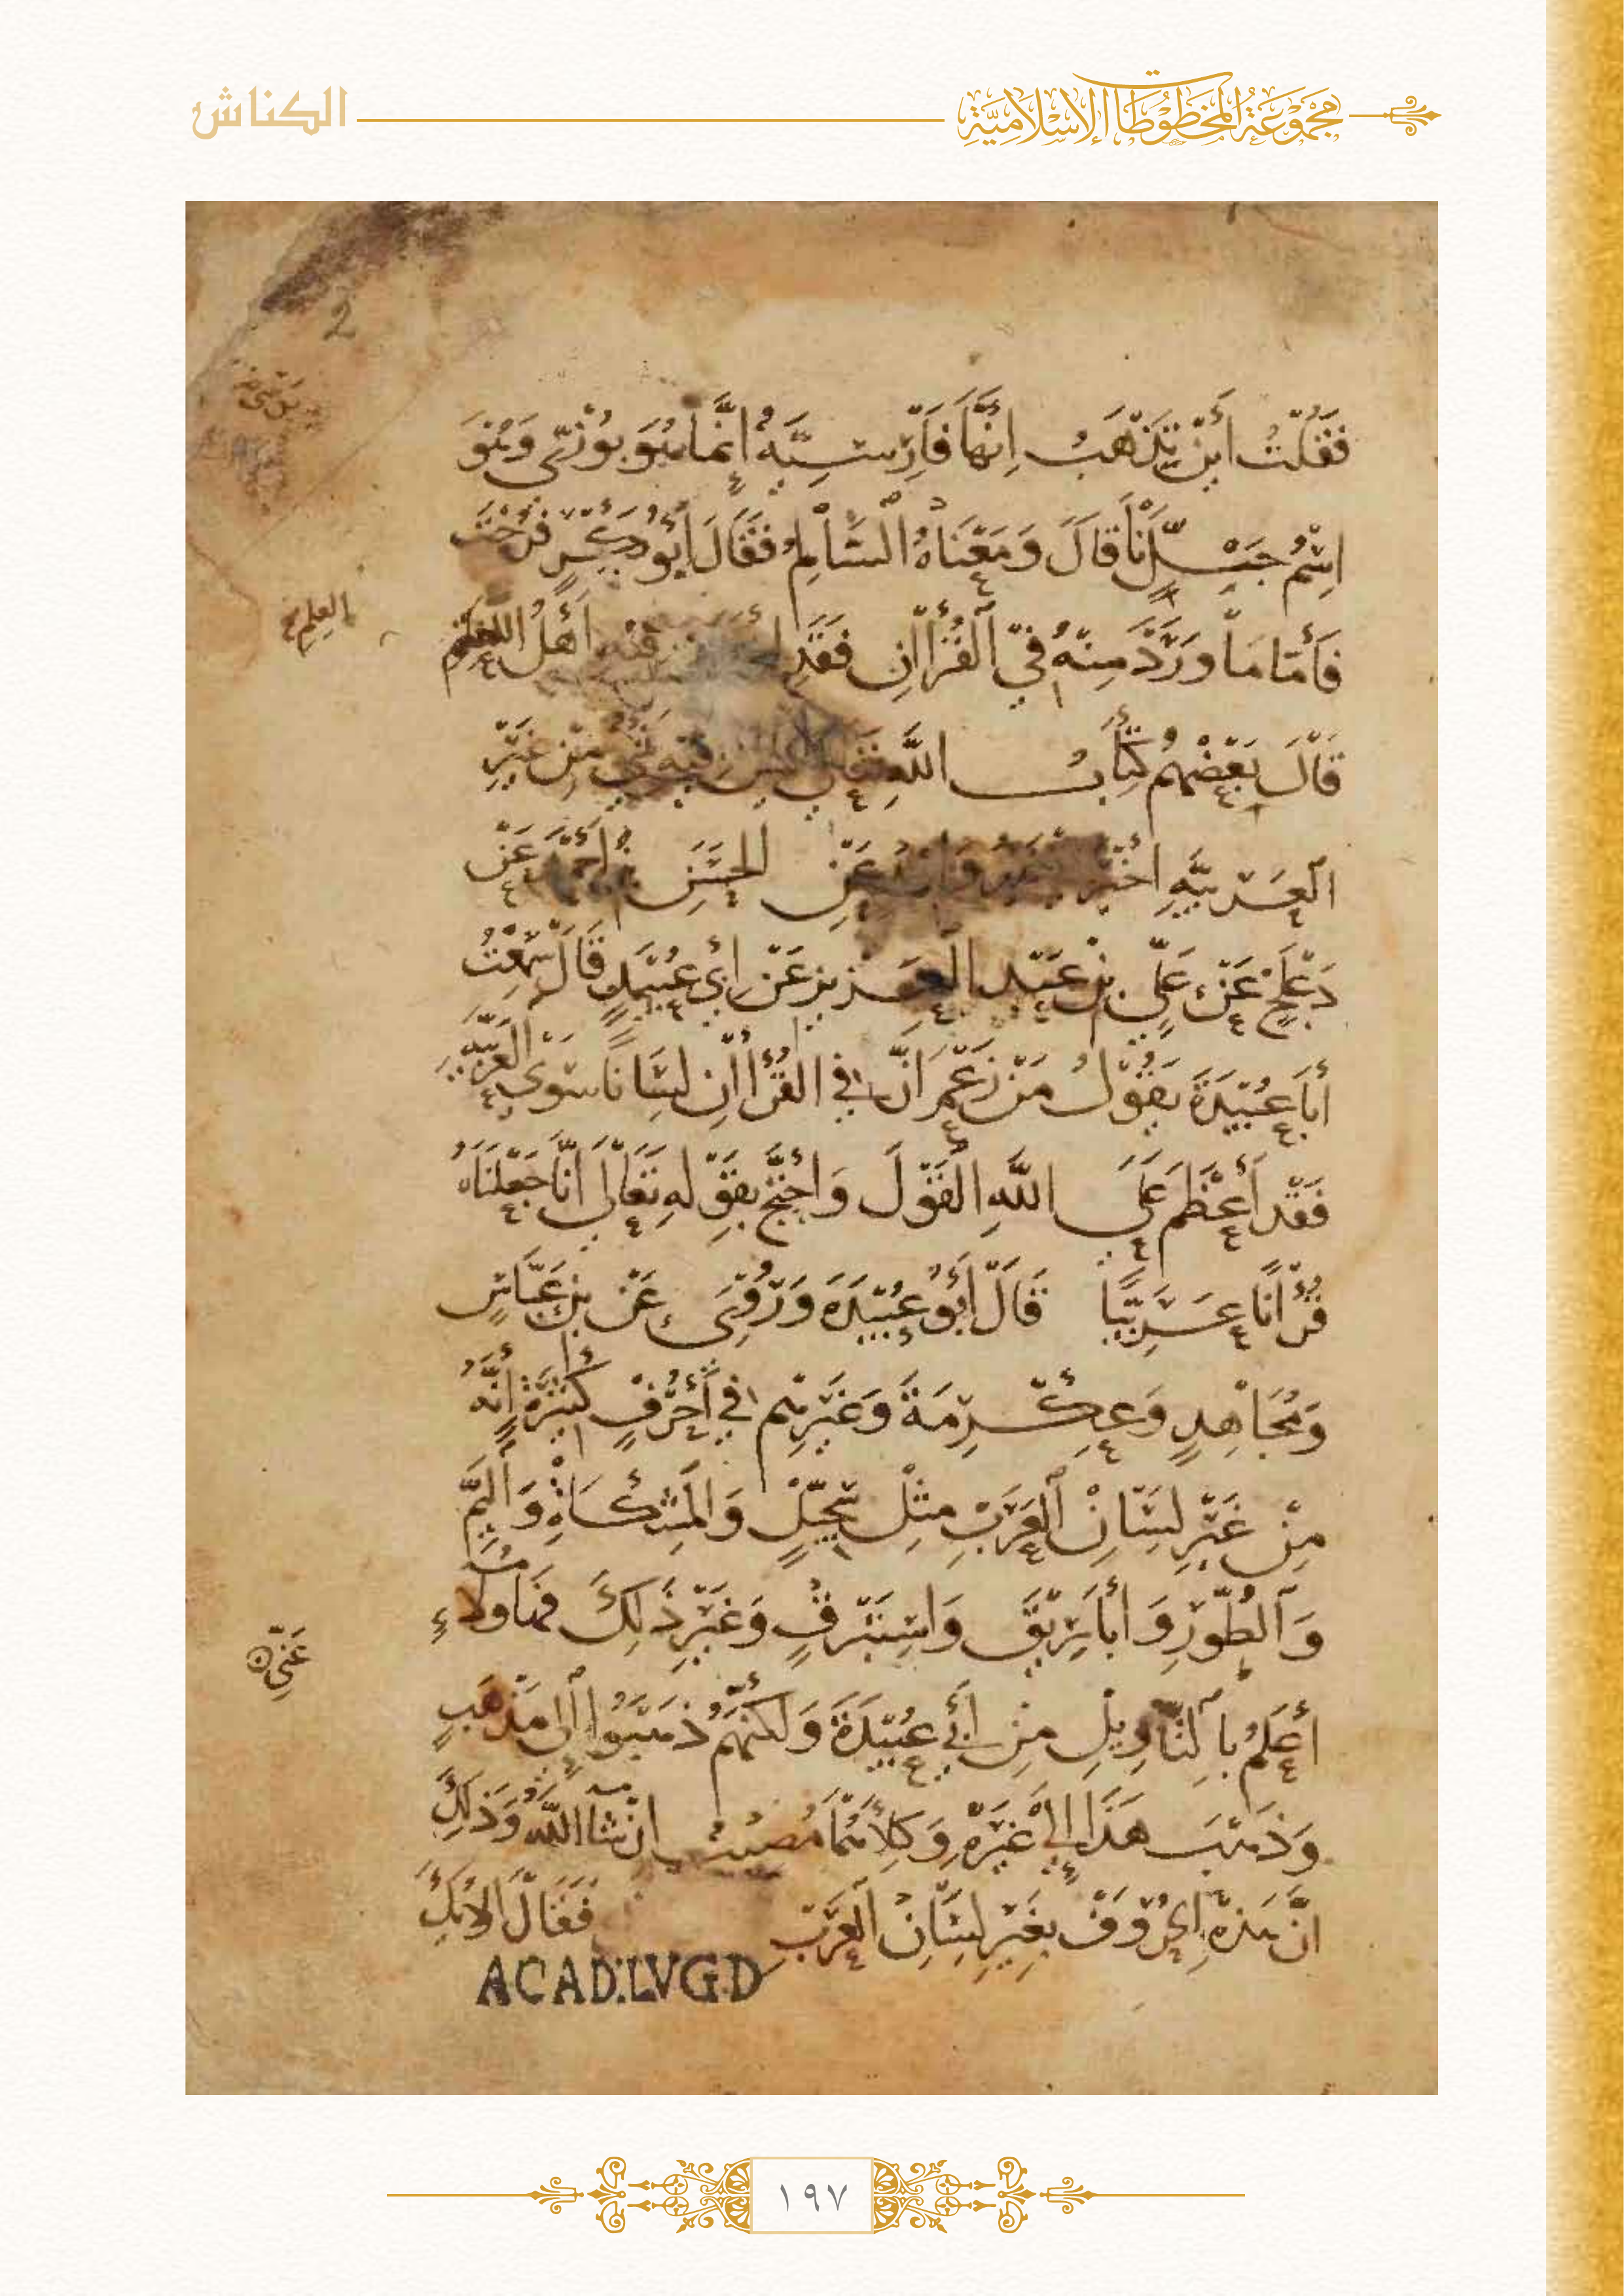 مجموعة المخطوطات الإسلامية
الكناش
2
فَقُلْتُ أَيْنَ تَذْهَبُ إِنَّهَا فَارِسِيَّةٌ إِنَّمَا هُوَ بُوذِي وَهُوَ
اسْمُ جَبَلٍ لَنَا قَالَ وَمَعْنَاهُ السَّالِمُ فَقَالَ أَبُو بَكْرٍ فَرَّجْتَ
فَأَمَّا مَا وَرَدَ مِنْهُ فِي الْقُرْآنِ فَقَدِ فِيهِ أَهْلُ الْعِلْمِ
العلم
قَالَ بَعْضُهُمْ كِتَابُ اللَّهِ لَيْسَ فِيهِ شَيْءٌ مِنْ غَيْرِ
الْعَرَبِيَّةِ عَنِ الْحَسَنِ بْنِ أَحْمَدَ عَنْ
دَعْلَجٍ عَنْ عَلِيِّ بْنِ عَبْدِ الْعَزِيزِ عَنْ أَبِي عُبَيْدٍ قَالَ سَمِعْتُ
أَبَا عُبَيْدَةَ يَقُولُ مَنْ زَعَمَ أَنَّ فِي الْقُرْآنِ لِسَانًا سِوَى الْعَرَبِيَّةِ
فَقَدْ أَعْظَمَ عَلَى اللَّهِ الْقَوْلَ وَاحْتَجَّ بِقَوْلِهِ تَعَالَى إِنَّا جَعَلْنَاهُ
قُرْآنًا عَرَبِيًّا قَالَ أَبُو عُبَيْدَةَ وَرُوِيَ عَنْ بْنِ عَبَّاسٍ
وَمُجَاهِدٍ وَعِكْرِمَةَ وَغَيْرِهِمْ فِي أَحْرُفٍ كَثِيرَةٍ أَنَّهُ
مِنْ غَيْرِ لِسَانِ الْعَرَبِ مِثْلِ سِجِّيلٍ وَالْمِشْكَاةِ وَالْيَمِّ
وَالطُّورِ وَأَبَارِيقَ وَاسْتَبْرَقٍ وَغَيْرِ ذَلِكَ فَهَؤُلَاءِ
أَعْلَمُ بِالتَّأْوِيلِ مِنْ أَبِي عُبَيْدَةَ وَلَكِنَّهُمْ ذَهَبُوا إِلَى مَذْهَبٍ
وَذَهَبَ هَذَا إِلَى غَيْرِهِ وَكِلَاهُمَا مُصِيبٌ إِنْ شَاءَ اللَّهُ وَذَلِكَ
أَنَّ هَذِهِ الْحُرُوفَ بِغَيْرِ لِسَانِ الْعَرَبِ فَقَالَ أُولَئِكَ
ACAD.LVGD
١٩٧